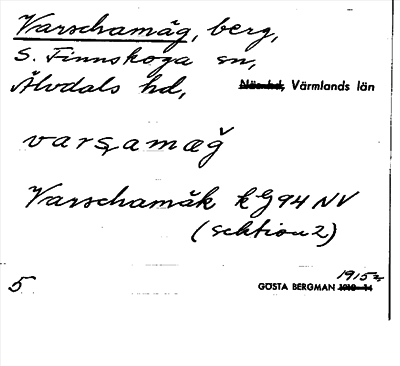 Varschamäg, berg,
S. Finnskoga sn,
Älvdals hd, Näs hd, Värmlands län
varşamæğ
Varschamäk kG94 NV
(sektion 2)
5 1915
GÖSTA BERGMAN 1910-14